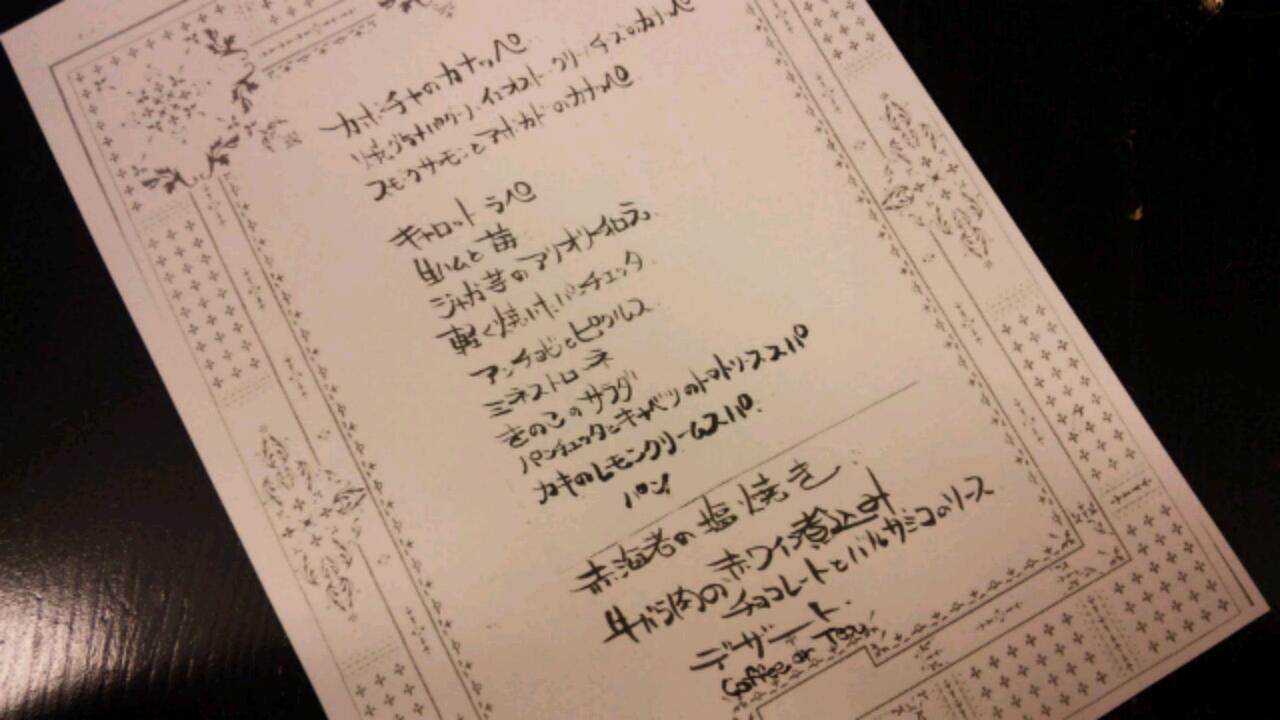 カボチャのカナッペ
クリームチーズのカナッペ
スモークサーモンとアボカドのカナッペ
キャロットラペ
生ハムと苺
ジャガ芋のアリオリ
軽く焼いたパンチェッタ
アンチョビとピクルス
ミネストローネ
きのこのサラダ
パンチェッタとキャベツのトマトソーススパ
カキのレモンクリームスパ
パン
赤海老の塩焼き
牛ほほ肉の赤ワイン煮込み
チョコレートとバルサミコのソース
デザート
Coffee or Tea